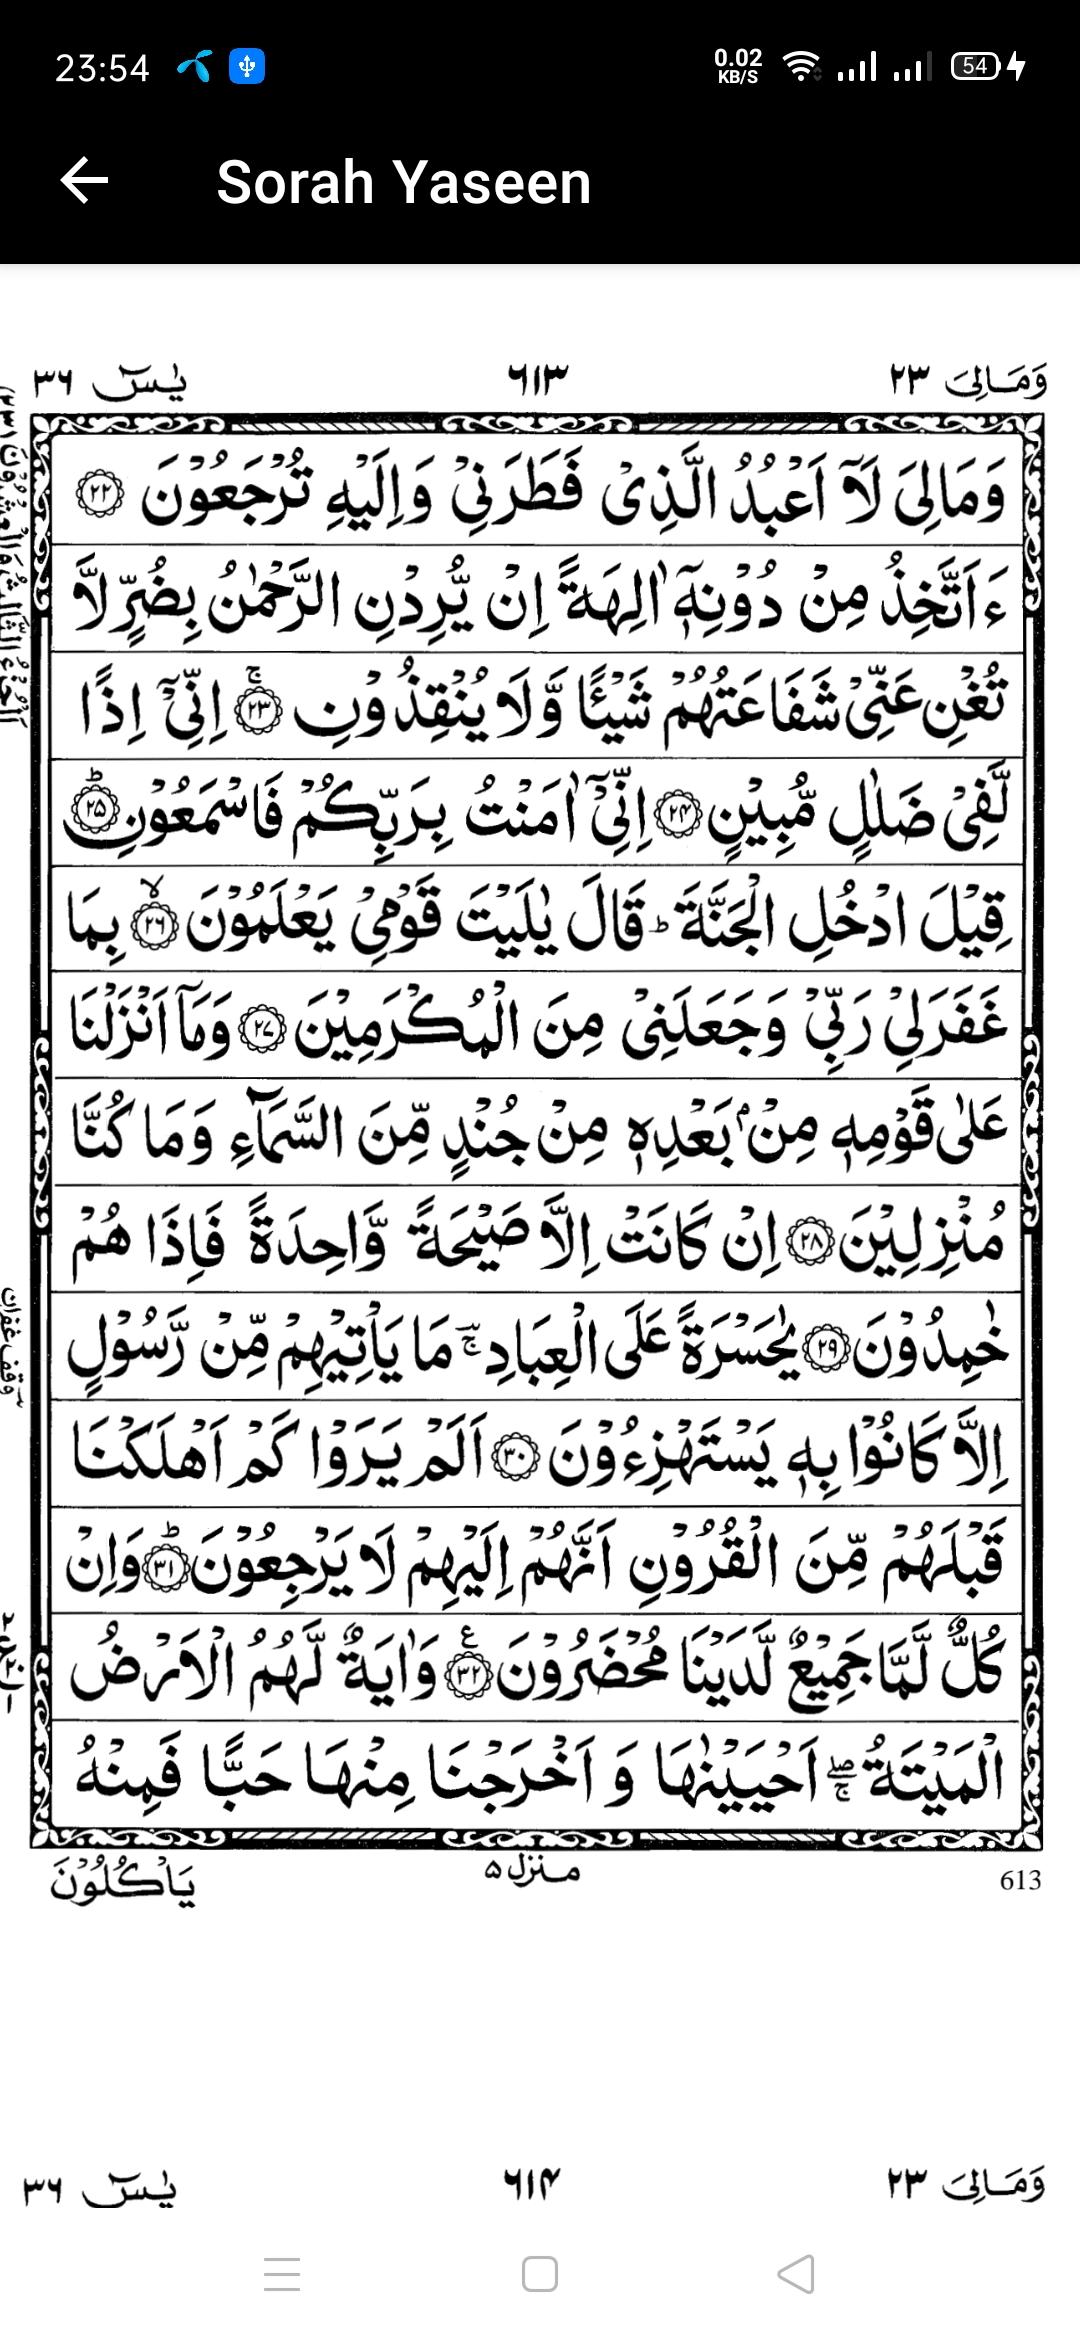 23:54
0.02 KB/S
54
Sorah Yaseen
وَمَالِیَ ٢٣
٦١٣
یٰسٓ ٣٦
وَمَالِیَ لَاۤ اَعْبُدُ الَّذِیْ فَطَرَنِیْ وَاِلَیْهِ تُرْجَعُوْنَ ﴿٢٢﴾
ءَاَتَّخِذُ مِنْ دُوْنِهٖۤ اٰلِهَةً اِنْ یُّرِدْنِ الرَّحْمٰنُ بِضُرٍّ لَّا
تُغْنِ عَنِّیْ شَفَاعَتُهُمْ شَیْئًا وَّلَا یُنْقِذُوْنِ ﴿٢٣﴾ۚ اِنِّیْۤ اِذًا
لَّفِیْ ضَلٰلٍ مُّبِیْنٍ ﴿٢٤﴾ اِنِّیْۤ اٰمَنْتُ بِرَبِّكُمْ فَاسْمَعُوْنِ ﴿٢٥﴾ؕ
قِیْلَ ادْخُلِ الْجَنَّةَ ؕ قَالَ یٰلَیْتَ قَوْمِیْ یَعْلَمُوْنَ ﴿٢٦﴾ۙ بِمَا
غَفَرَلِیْ رَبِّیْ وَجَعَلَنِیْ مِنَ الْمُكْرَمِیْنَ ﴿٢٧﴾ وَمَاۤ اَنْزَلْنَا
عَلٰی قَوْمِهٖ مِنْۢ بَعْدِهٖ مِنْ جُنْدٍ مِّنَ السَّمَآءِ وَمَا كُنَّا
مُنْزِلِیْنَ ﴿٢٨﴾ اِنْ كَانَتْ اِلَّا صَیْحَةً وَّاحِدَةً فَاِذَا هُمْ
خٰمِدُوْنَ ﴿٢٩﴾ یٰحَسْرَةً عَلَی الْعِبَادِ ۚ مَا یَاْتِیْهِمْ مِّنْ رَّسُوْلٍ
اِلَّا كَانُوْا بِهٖ یَسْتَهْزِءُوْنَ ﴿٣٠﴾ اَلَمْ یَرَوْا كَمْ اَهْلَكْنَا
قَبْلَهُمْ مِّنَ الْقُرُوْنِ اَنَّهُمْ اِلَیْهِمْ لَا یَرْجِعُوْنَ ﴿٣١﴾ؕ وَاِنْ
كُلٌّ لَّمَّا جَمِیْعٌ لَّدَیْنَا مُحْضَرُوْنَ ﴿٣٢﴾ وَاٰیَةٌ لَّهُمُ الْاَرْضُ
الْمَیْتَةُ ۖۚ اَحْیَیْنٰهَا وَ اَخْرَجْنَا مِنْهَا حَبًّا فَمِنْهُ
یَاْكُلُوْنَ
منزل ٥
613
وقف غفران
وَمَالِیَ ٢٣
٦١٤
یٰسٓ ٣٦